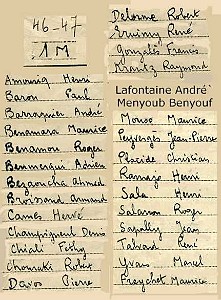 46-47
1M
Amouriq Henri
Baron Paul
Barraquier André
Benamara Maurice
Benamou Roger
Benmergui Adrien
Bezaoucha Ahmed
Broissand Armand
Cames Hervé
Champigneul Denis
Chiali Fethy
Chouraki Robert
Davos Pierre
Delorme Robert
Gruimy René
Gonzalès Francis
Krantz Raymond
Lafontaine André
Menyoub Benyouf
Monso Maurice
Peyrègne Jean-Pierre
Placide Christian
Ramago Henri
Sala Henri
Salanson Roger
Sapolly Jean
Talvard René
Yvars Marcel
Freychet Maurice